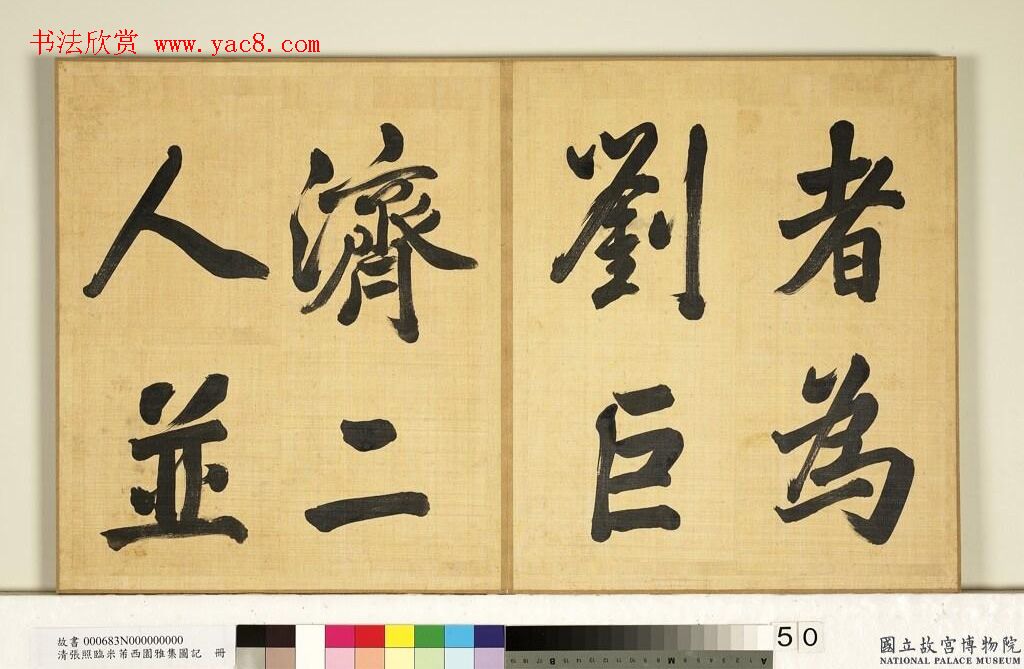 书法欣赏 www.yac8.com
者為
劉巨
濟二
人並
故書 000683N000000000
清張照臨米芾西園雅集圖記 冊
50
國立故宮博物院
NATIONAL PALACE MUSEUM